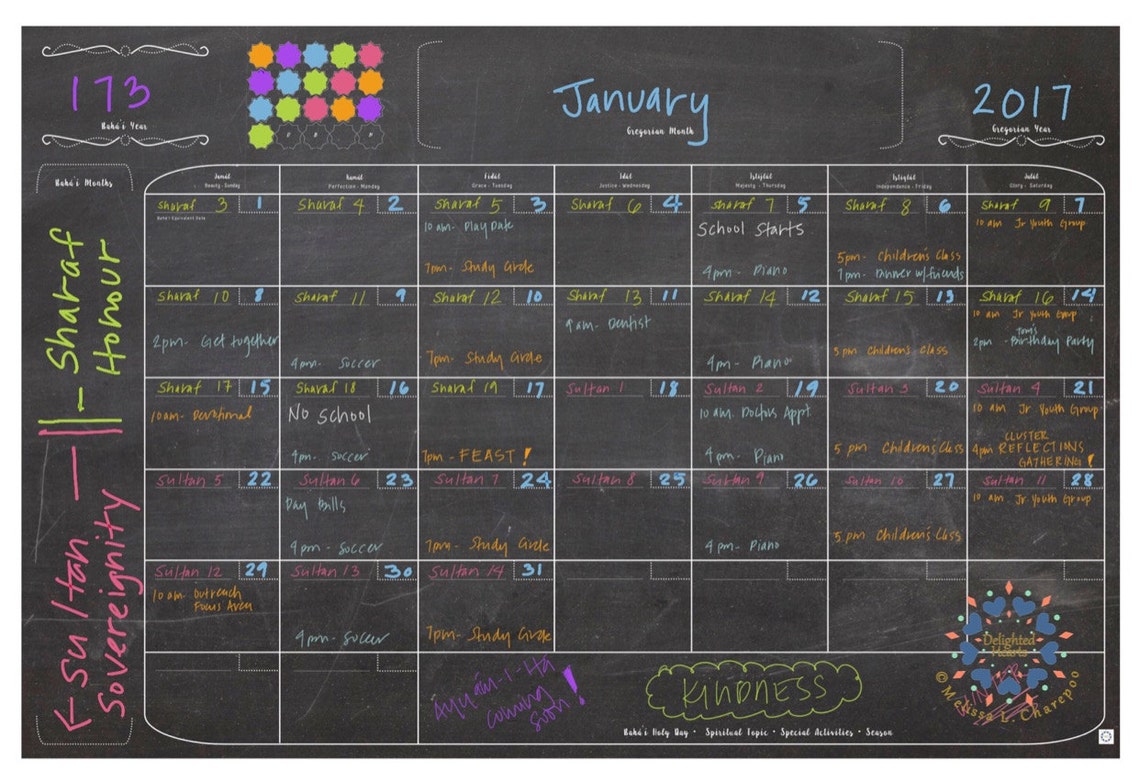 173
Bahá'í Year
January
Gregorian Month
2017
Gregorian Year
Bahá'í Months
Sharaf
Honour
Sultan
Sovereignity
Jamál
Beauty - Sunday
Kamál
Perfection - Monday
Fidál
Grace - Tuesday
Idál
Justice - Wednesday
Istijlál
Majesty - Thursday
Istiqlál
Independence - Friday
Jalál
Glory - Saturday
Sharaf 3 1
Bahá'í Equivalent Date
Sharaf 4 2
Sharaf 5 3
10 am - Play Date
7pm - Study Circle
Sharaf 6 4
Sharaf 7 5
School Starts
4pm - Piano
Sharaf 8 6
5pm - Children's Class
7pm - Dinner w/friends
Sharaf 9 7
10 am Jr Youth Group
Sharaf 10 8
2pm - Get together
Sharaf 11 9
4pm - Soccer
Sharaf 12 10
7pm - Study Circle
Sharaf 13 11
9am - Dentist
Sharaf 14 12
4pm - Piano
Sharaf 15 13
5pm Children's Class
Sharaf 16 14
10 am Jr Youth Group
Tom's
2pm - Birthday Party
Sharaf 17 15
10am - Devotional
Sharaf 18 16
No School
4pm - Soccer
Sharaf 19 17
7pm - FEAST!
Sultan 1 18
Sultan 2 19
10 am. Doctor Appt.
4pm - Piano
Sultan 3 20
5 pm Children's Class
Sultan 4 21
10 am Jr Youth Group
CLUSTER
4pm REFLECTIONS
GATHERING!
Sultan 5 22
Sultan 6 23
Pay Bills
4pm - Soccer
Sultan 7 24
7pm - Study Circle
Sultan 8 25
Sultan 9 26
4pm - Piano
Sultan 10 27
5pm Children's Class
Sultan 11 28
10 am Jr Youth Group
Sultan 12 29
10 am Outreach
Focus Area
Sultan 13 30
4pm - Soccer
Sultan 14 31
7pm - Study Circle
Ayyám-i-Há
coming
soon!
KINDNESS
Delighted
Hearts
© Melissa L. Charepoo
Bahá'í Holy Day • Spiritual Topic • Special Activities • Season